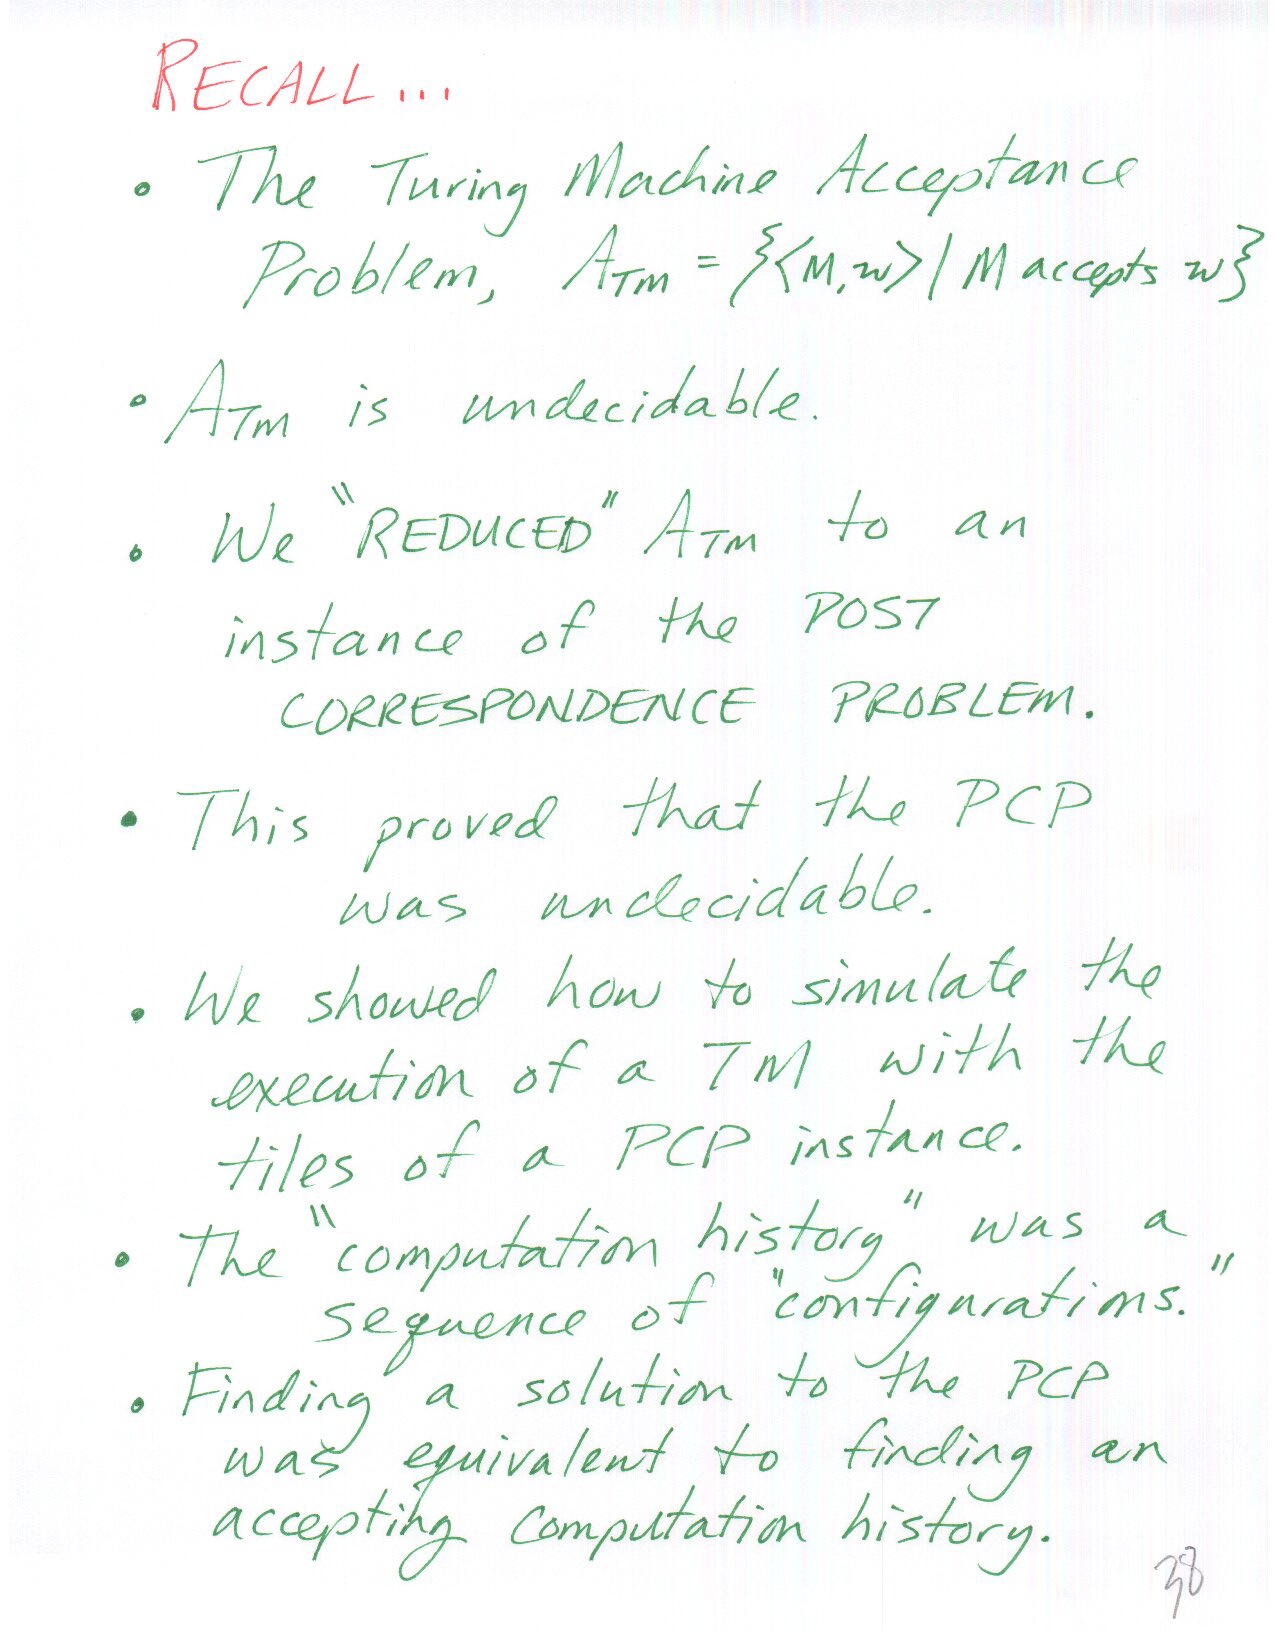 RECALL...
• The Turing Machine Acceptance
Problem, A_TM = {<M,w> | M accepts w}
• A_TM is undecidable.
• We "REDUCED" A_TM to an
instance of the POST
CORRESPONDENCE PROBLEM.
• This proved that the PCP
was undecidable.
• We showed how to simulate the
execution of a TM with the
tiles of a PCP instance.
• The "computation history" was a
sequence of "configurations."
• Finding a solution to the PCP
was equivalent to finding an
accepting computation history.
38